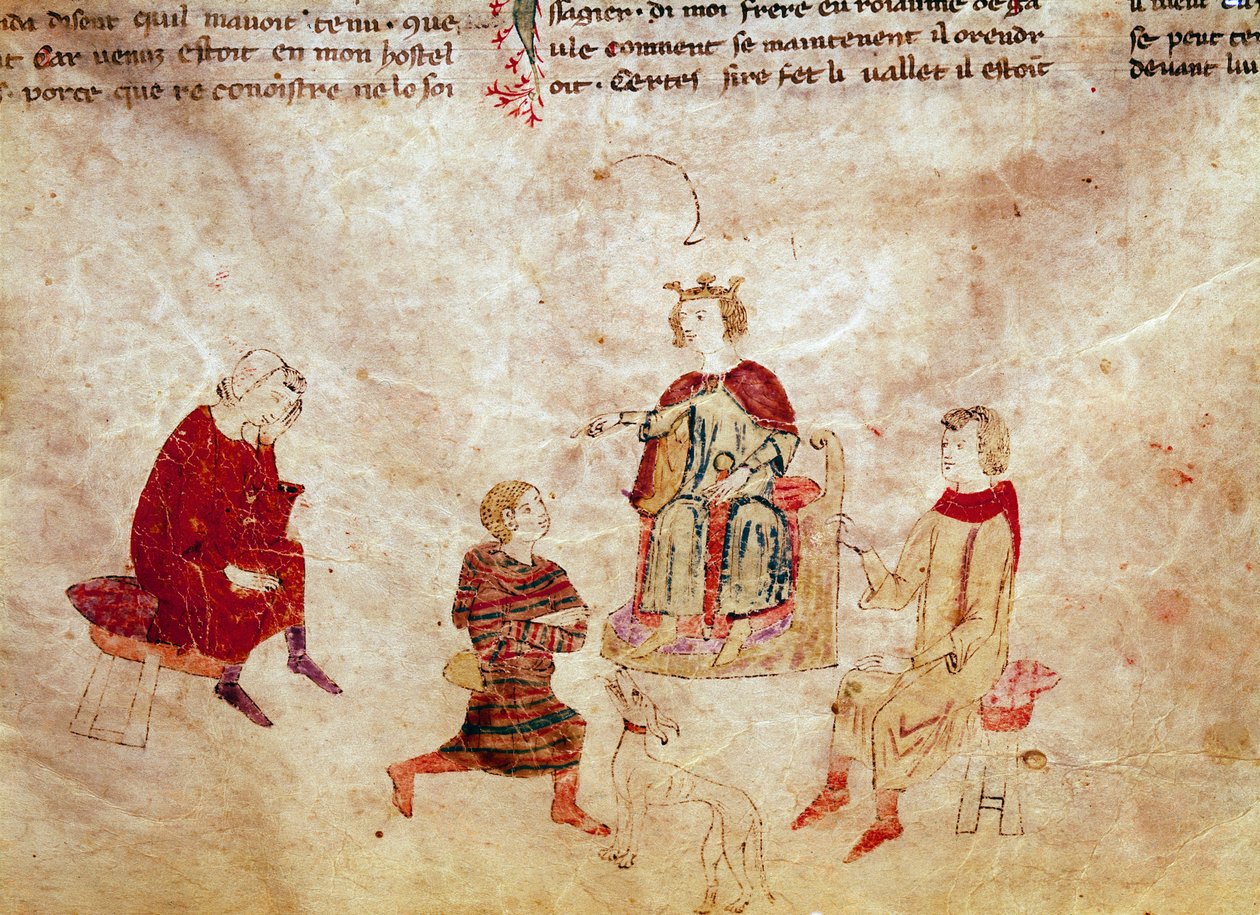 disent quil mauoit tenu. que
Car uenuz estoit en mon hostel
porce que reconoistre ne lo soi
ssagier. di moi frere eu roiaume de ga
ule comment se maintenent il orendr
oit. Certes sire fet li uallet il estoit
se peut
deuant lui